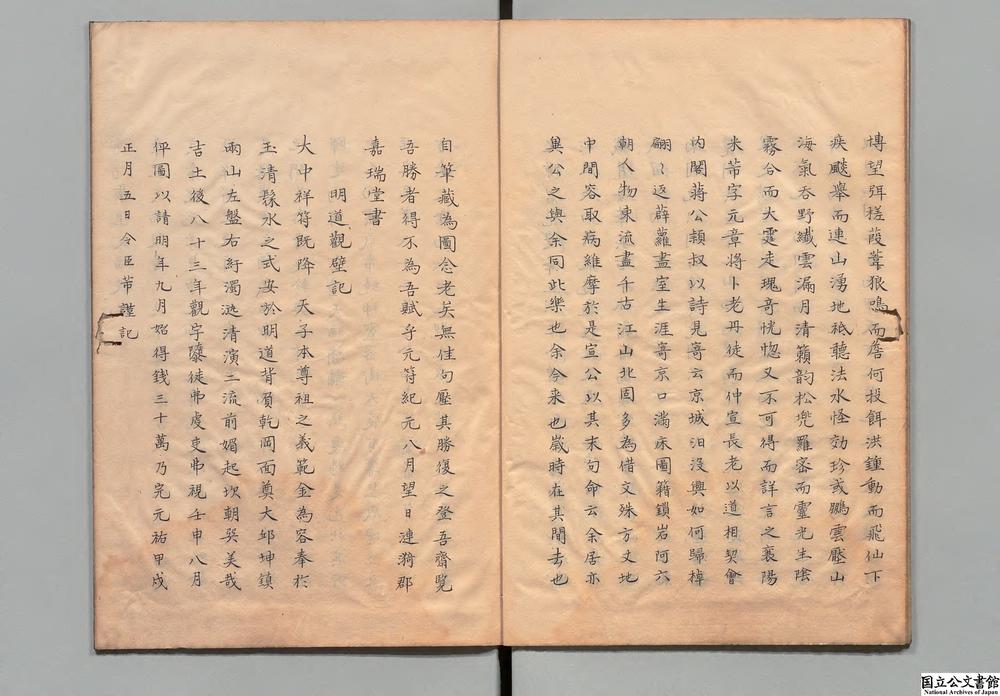 槫望弭槎葭葦狼鳴而詹何投餌洪鍾動而飛仙下
疾飇舉而連山湧地祇聽法水怪効珍或鵬雲壓山
海氣呑野纖雲漏月清籟韵松兜羅密而靈光生陰
霧合而大霆走瑰竒恍惚又不可得而詳言之襄陽
米芾字元章将卜老丹徒而仲宣長老以道相契會
内閣蔣公頴叔以詩見寄云京城汩没興如何歸棹
翩〻返薜蘿盡室生涯寄京口滿床圖籍鎖岩阿六
朝人物東流盡千古江山北固多為借文殊方丈地
中間容取病維摩於是宣公以其末句命云余居亦
異公之與余同此樂也余今来也歲時在其間去也
自筆藏為圖念老矣無佳句壓其勝復之登吾齋覧
吾勝者得不為吾賦乎元符紀元八月望日連漪郡
嘉瑞堂書
明道觀壁記
大中祥符既降天子本尊祖之義範金為容奉於
玉清緐水之式安於明道背負乾岡面奠大邱坤鎮
兩山左盤右紆濁㴑清演二流前媚起坎朝巽美哉
吉土後八十三年觀宇隳徒弗虔吏弗視壬申八月
伻圖以請明年九月始得錢三十萬乃完元祐甲戌
正月五日令臣芾謹記
国立公文書館
National Archives of Japan